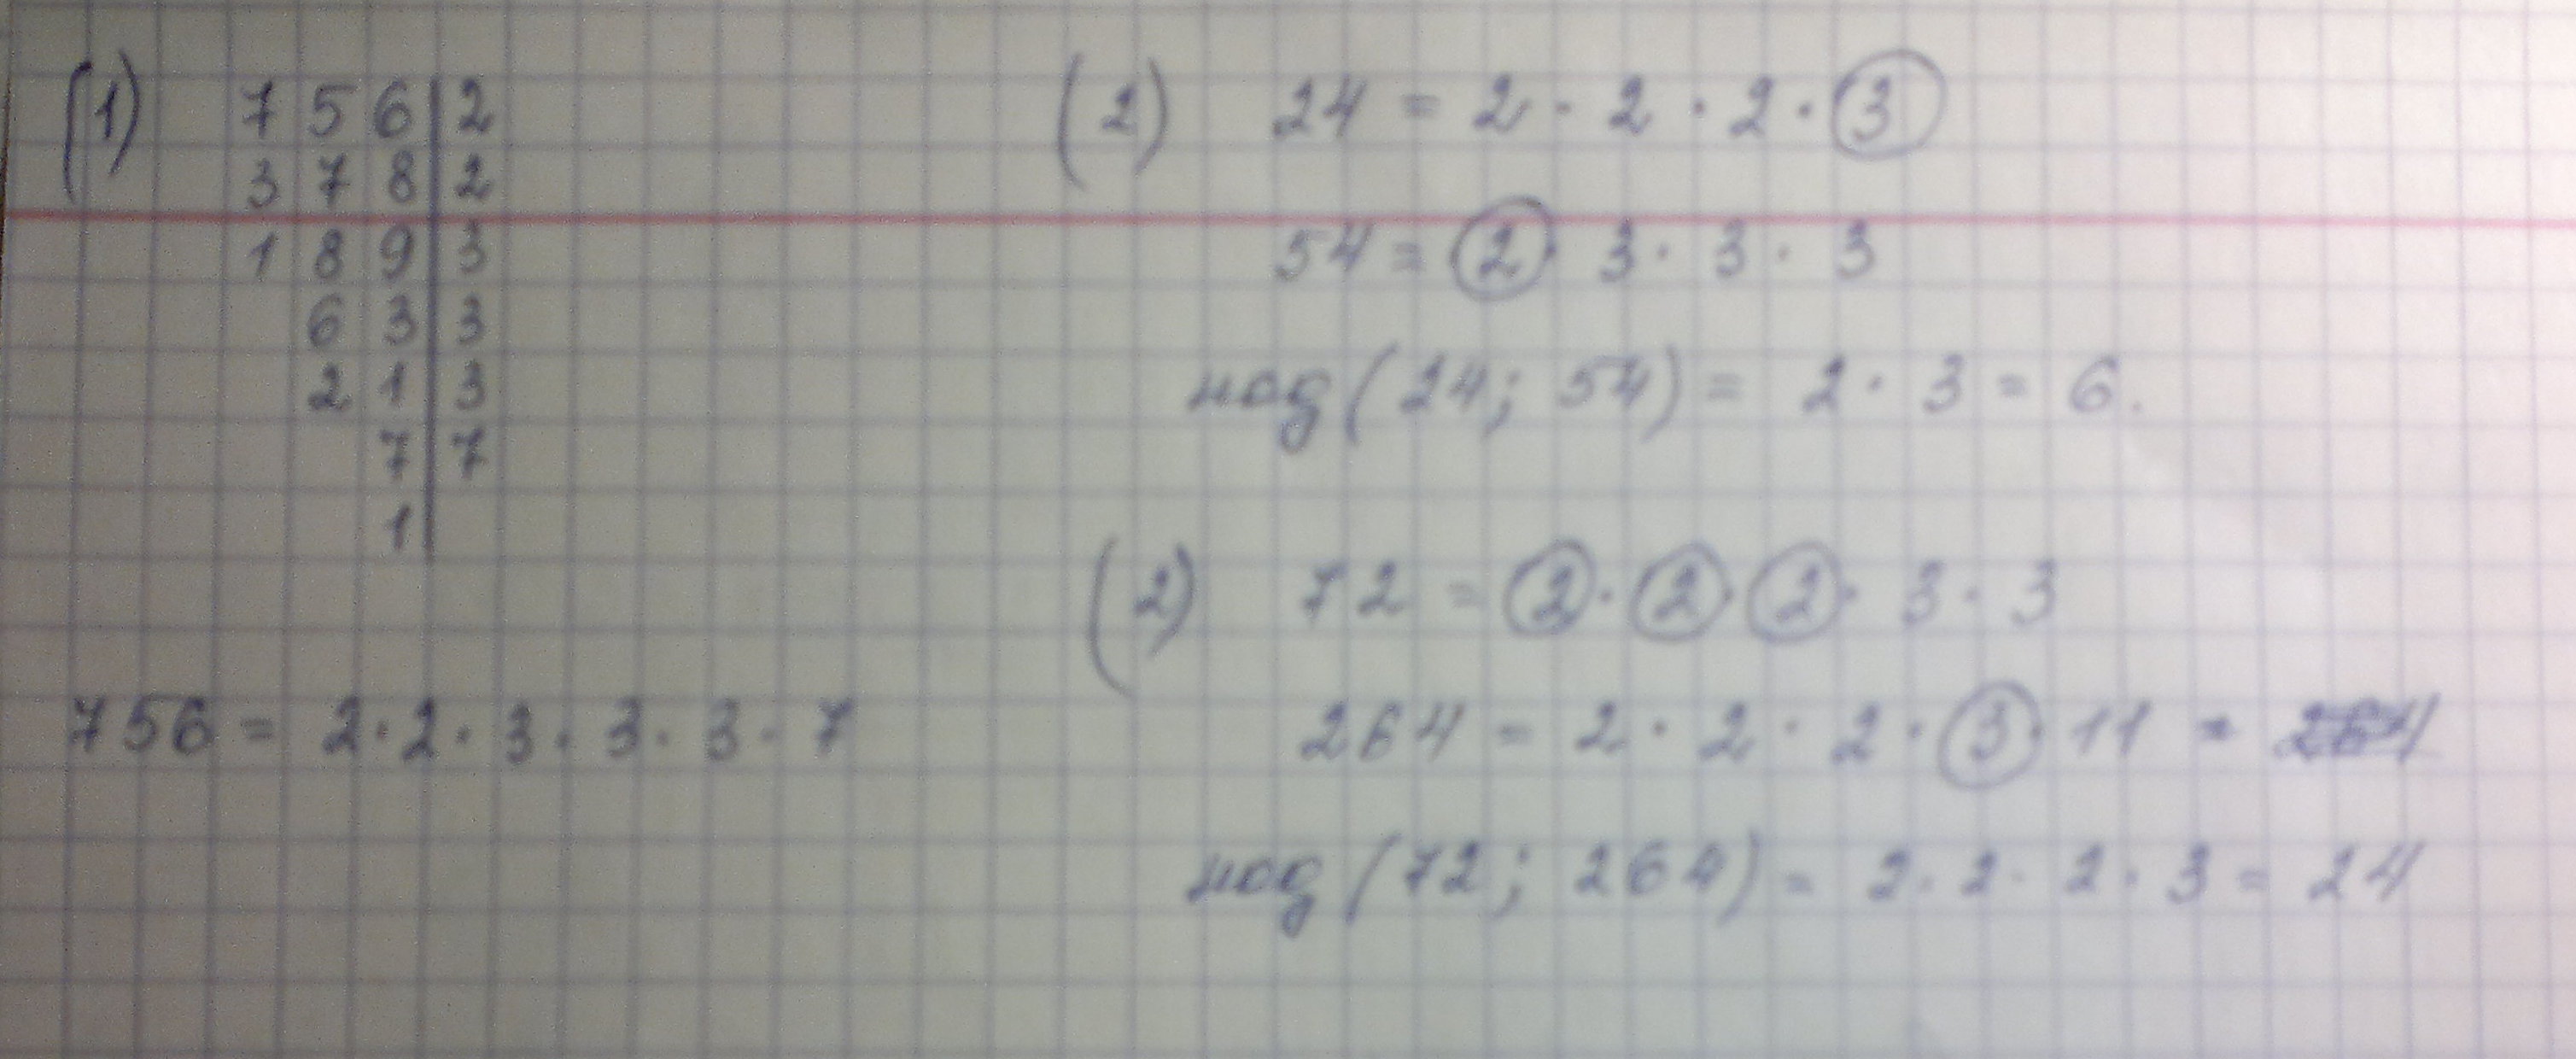 (1) 756 | 2
378 | 2
189 | 3
63 | 3
21 | 3
7 | 7
1 |
756 = 2 · 2 · 3 · 3 · 3 · 7
(2) 24 = 2 · 2 · 2 · 3
54 = 2 · 3 · 3 · 3
нод (24; 54) = 2 · 3 = 6.
(2) 72 = 2 · 2 · 2 · 3 · 3
264 = 2 · 2 · 2 · 3 · 11 =
нод (72; 264) = 2 · 2 · 2 · 3 = 24